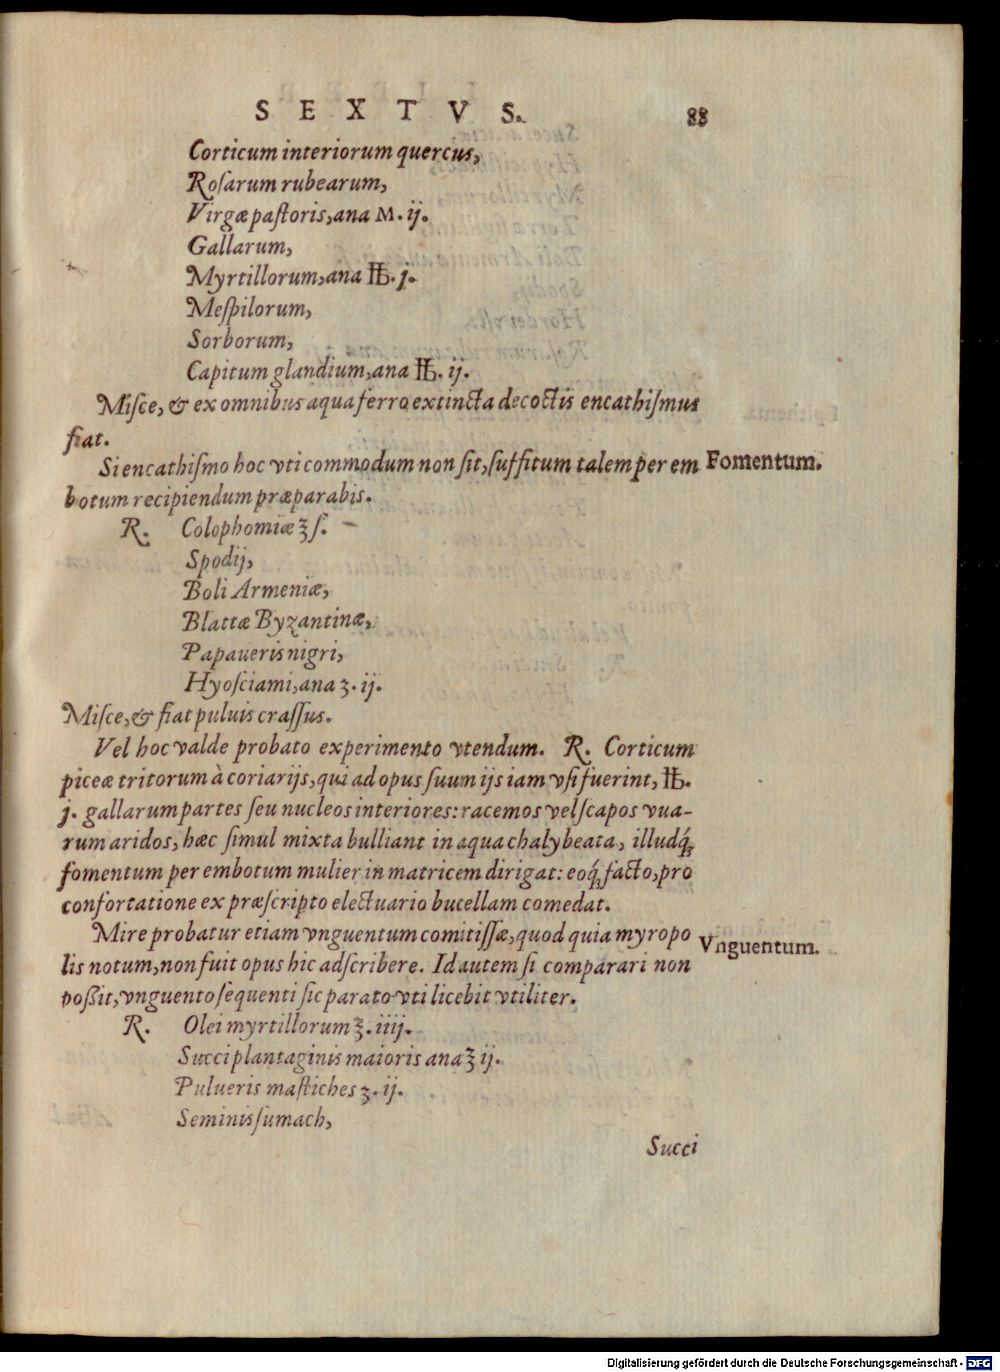 SEXTVS. 88
Corticum interiorum quercus,
Roſarum rubearum,
Virgæ paſtoris, ana M. ij.
Gallarum,
Myrtillorum, ana ℔. j.
Meſpilorum,
Sorborum,
Capitum glandium, ana ℔. ij.
Miſce, & ex omnibus aqua ferro extincta decoctis encathiſmus
fiat.
Si encathiſmo hoc vti commodum non ſit, ſuffitum talem per em Fomentum.
botum recipiendum præparabis.
R. Colophomiæ ʒ ſ.
Spodij,
Boli Armeniæ,
Blattæ Byzantinæ,
Papaueris nigri,
Hyoſciami, ana ʒ. ij.
Miſce, & fiat puluis craſſus.
Vel hoc valde probato experimento vtendum. R. Corticum
piceæ tritorum à coriarijs, qui ad opus ſuum ijs iam vſi fuerint, ℔.
j. gallarum partes ſeu nucleos interiores: racemos vel ſcapos vua-
rum aridos, hæc ſimul mixta bulliant in aqua chalybeata, illudq́;
fomentum per embotum mulier in matricem dirigat: eoq́; facto, pro
confortatione ex præſcripto electuario bucellam comedat.
Mire probatur etiam vnguentum comitiſſæ, quod quia myropo Vnguentum.
lis notum, non fuit opus hic adſcribere. Id autem ſi comparari non
poßit, vnguento ſequenti ſic parato vti licebit vtiliter.
R. Olei myrtillorum ℥. iiij.
Succi plantaginis maioris ana ℥ ij.
Pulueris maſtiches ʒ. ij.
Seminis ſumach,
Succi
Digitalisierung gefördert durch die Deutsche Forschungsgemeinschaft - DFG